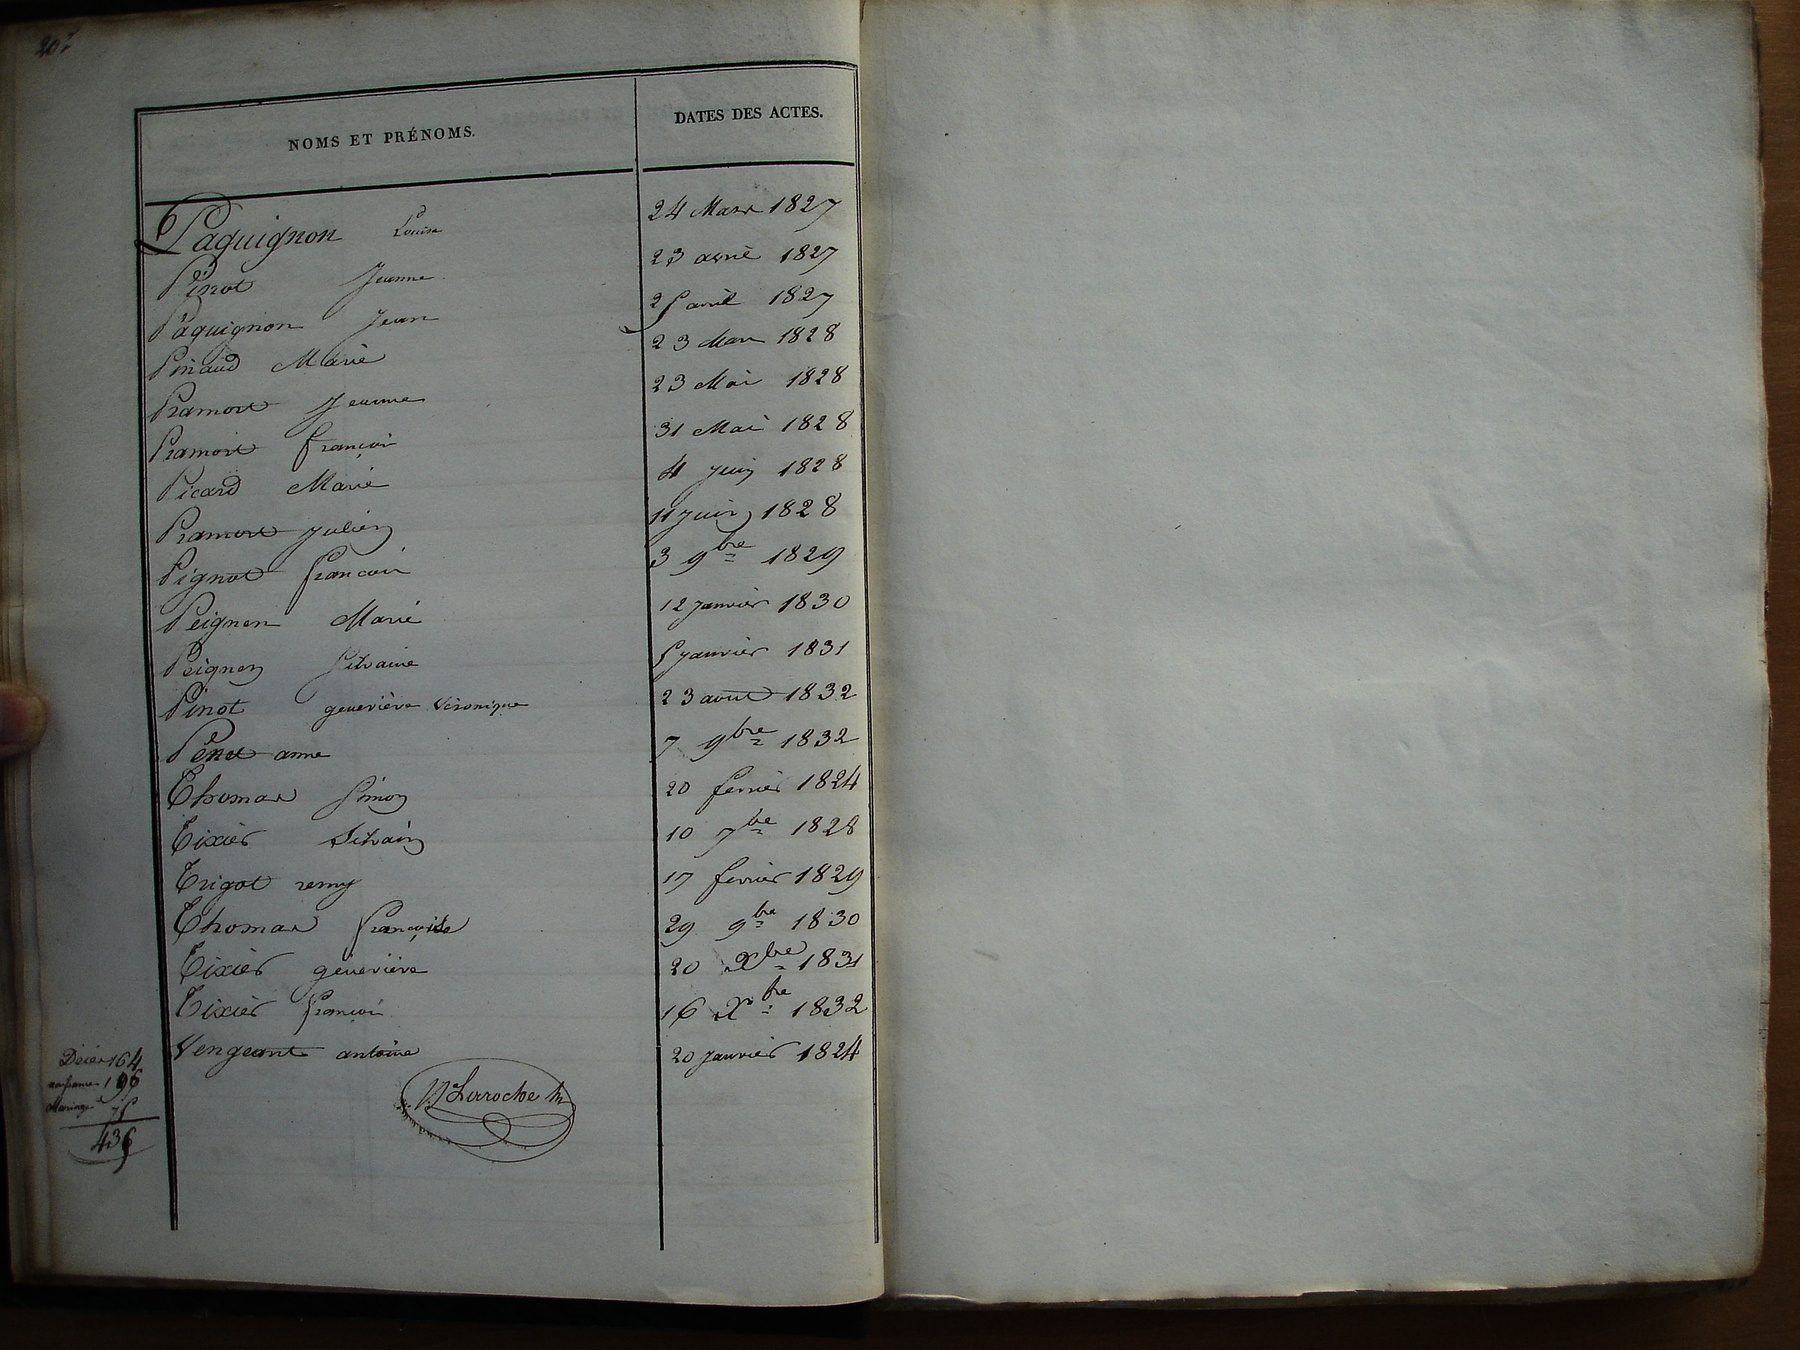 NOMS ET PRÉNOMS. DATES DES ACTES.
Paquignon Louise 24 Mars 1827
Pinot Jeanne 23 avril 1827
Paquignon Jean 25 avril 1827
Pinaud Marie 23 Mars 1828
Pramort Jeanne 23 Mai 1828
Pramort françois 31 Mai 1828
Picard Marie 4 Juin 1828
Pramort Julien 11 Juin 1828
Pignot françois 3 9bre 1829
Peignen Marie 12 Janvier 1830
Peignen Silvaine 5 Janvier 1831
Pinot geneviève Véronique 23 aout 1832
Penet anne 7 9bre 1832
Thomas Simon 20 fevrier 1824
Tixier Silvain 10 7bre 1828
Trigot remy 17 fevrier 1829
Thomas françoise 29 9bre 1830
Tixier geneviève 20 Xbre 1831
Tixier françois 16 Xbre 1832
Vengeant antoine 20 Janvier 1824
Décès 164
naissances 196
Mariages 75
435